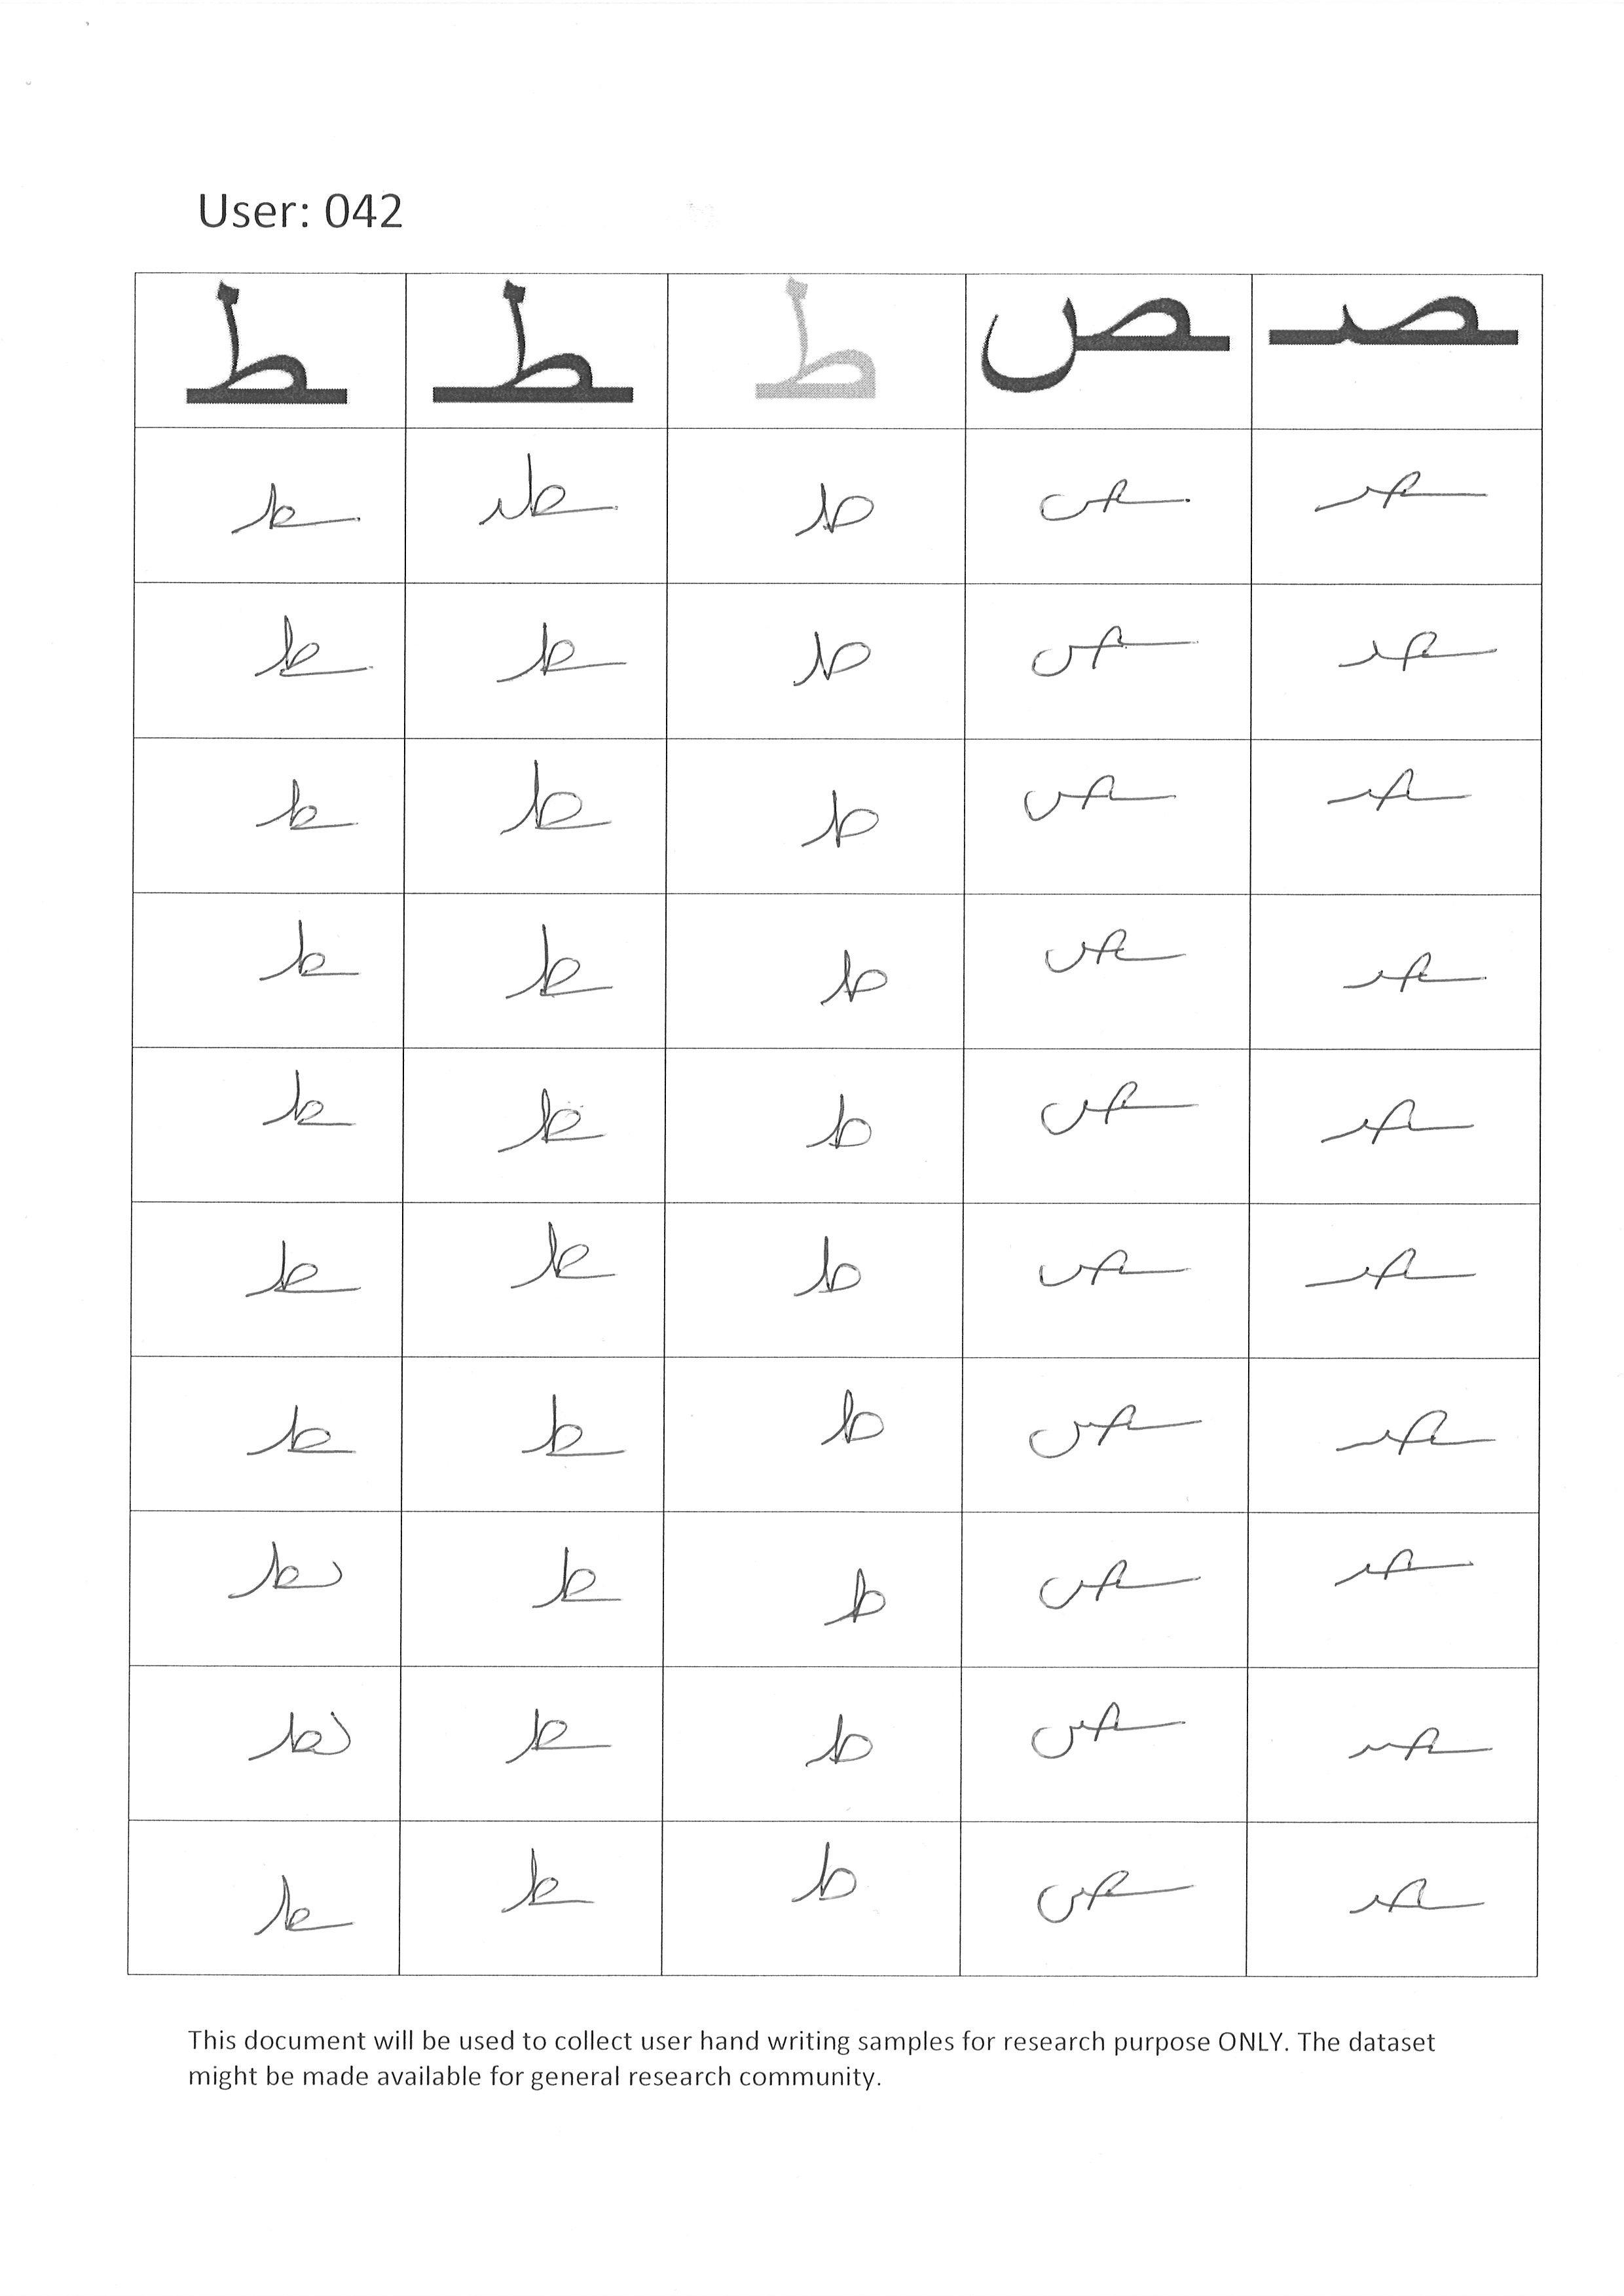 User: 042
ـصـ ـص طـ ـطـ ـط
ـصـ ـص طـ ـطـ ـط
ـصـ ـص طـ ـطـ ـط
ـصـ ـص طـ ـطـ ـط
ـصـ ـص طـ ـطـ ـط
ـصـ ـص طـ ـطـ ـط
ـصـ ـص طـ ـطـ ـط
ـصـ ـص طـ ـطـ ـط
ـصـ ـص طـ ـطـ ـط
ـصـ ـص طـ ـطـ ـط
ـصـ ـص طـ ـطـ ـط
This document will be used to collect user hand writing samples for research purpose ONLY. The dataset
might be made available for general research community.